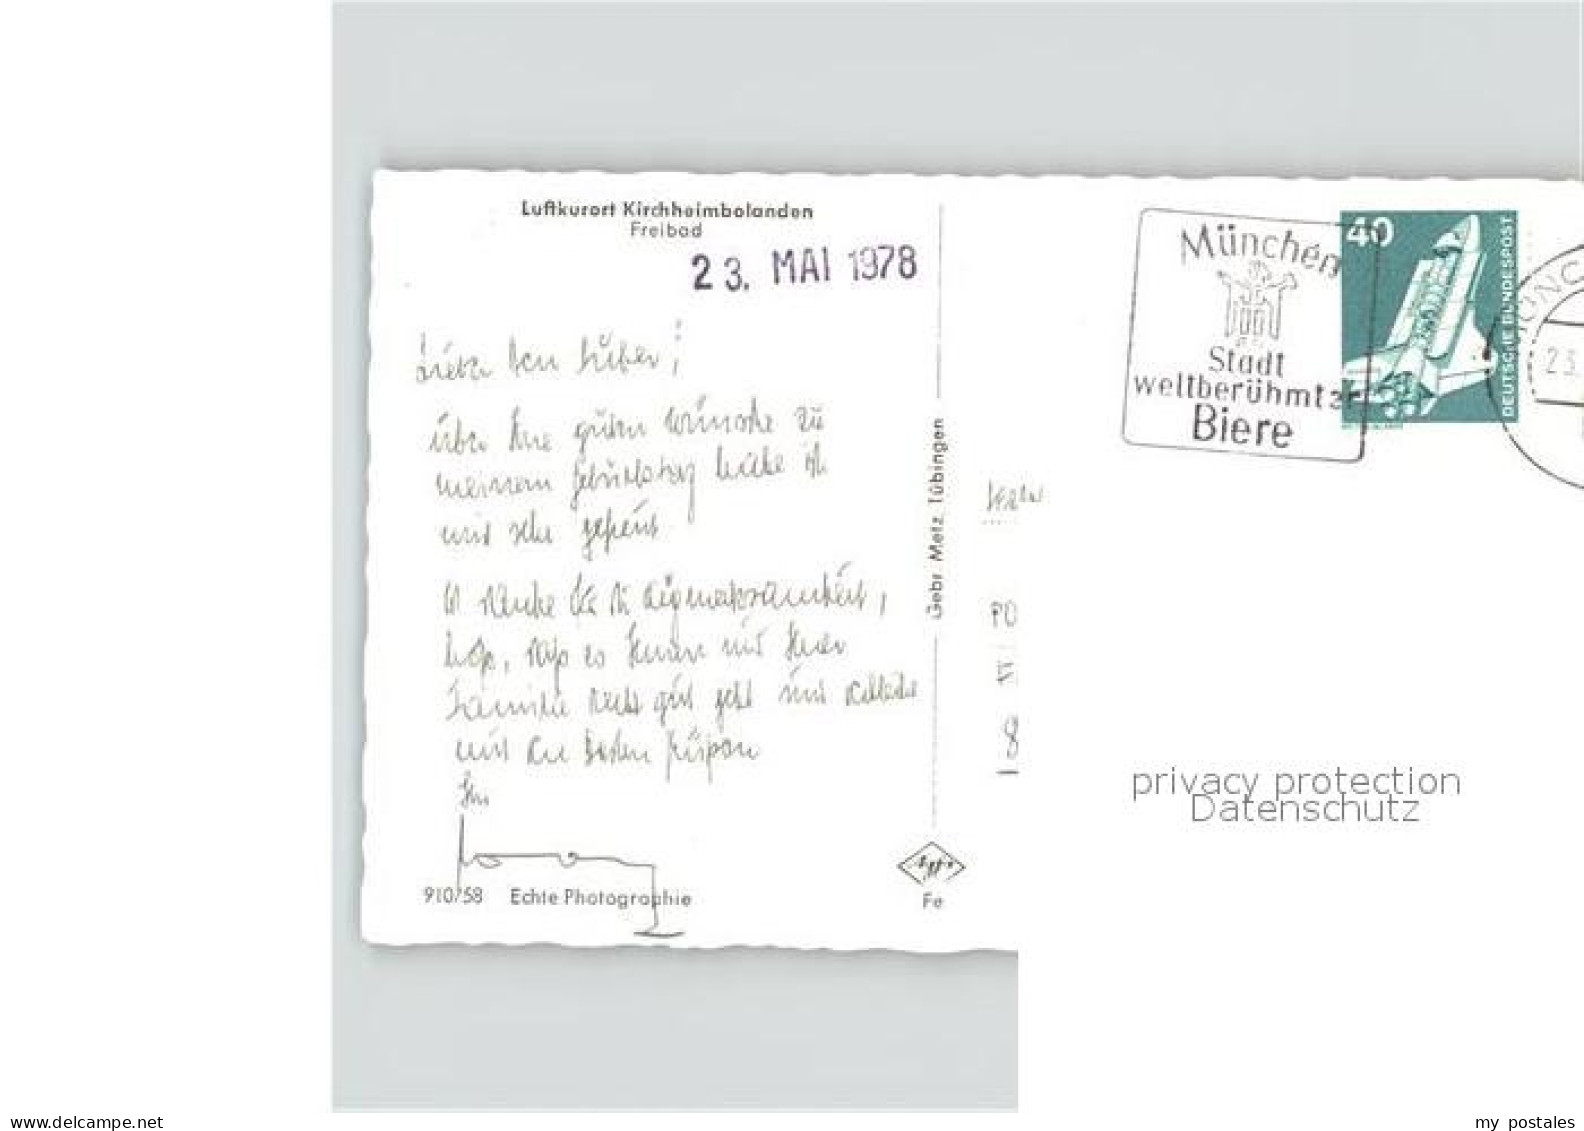 Luftkurort Kirchheimbolanden
Freibad
23. MAI 1978
Lieber Herr Huber!
über Ihre guten Wünsche zu
meinem Geburtstag habe ich
mich sehr gefreut
Ich danke für die Aufmerksamkeit,
hoffe, daß es Ihnen und Ihrer
Familie recht gut geht und
mit den besten Grüßen
Ihr
910/58 Echte Photographie
Gebr. Metz Tübingen
Agfa
Fe
München
Stadt
weltberühmter
Biere
40
DEUTSCHE BUNDESPOST
23.
HERRN
PO
8
privacy protection
Datenschutz
www.delcampe.net
my postales